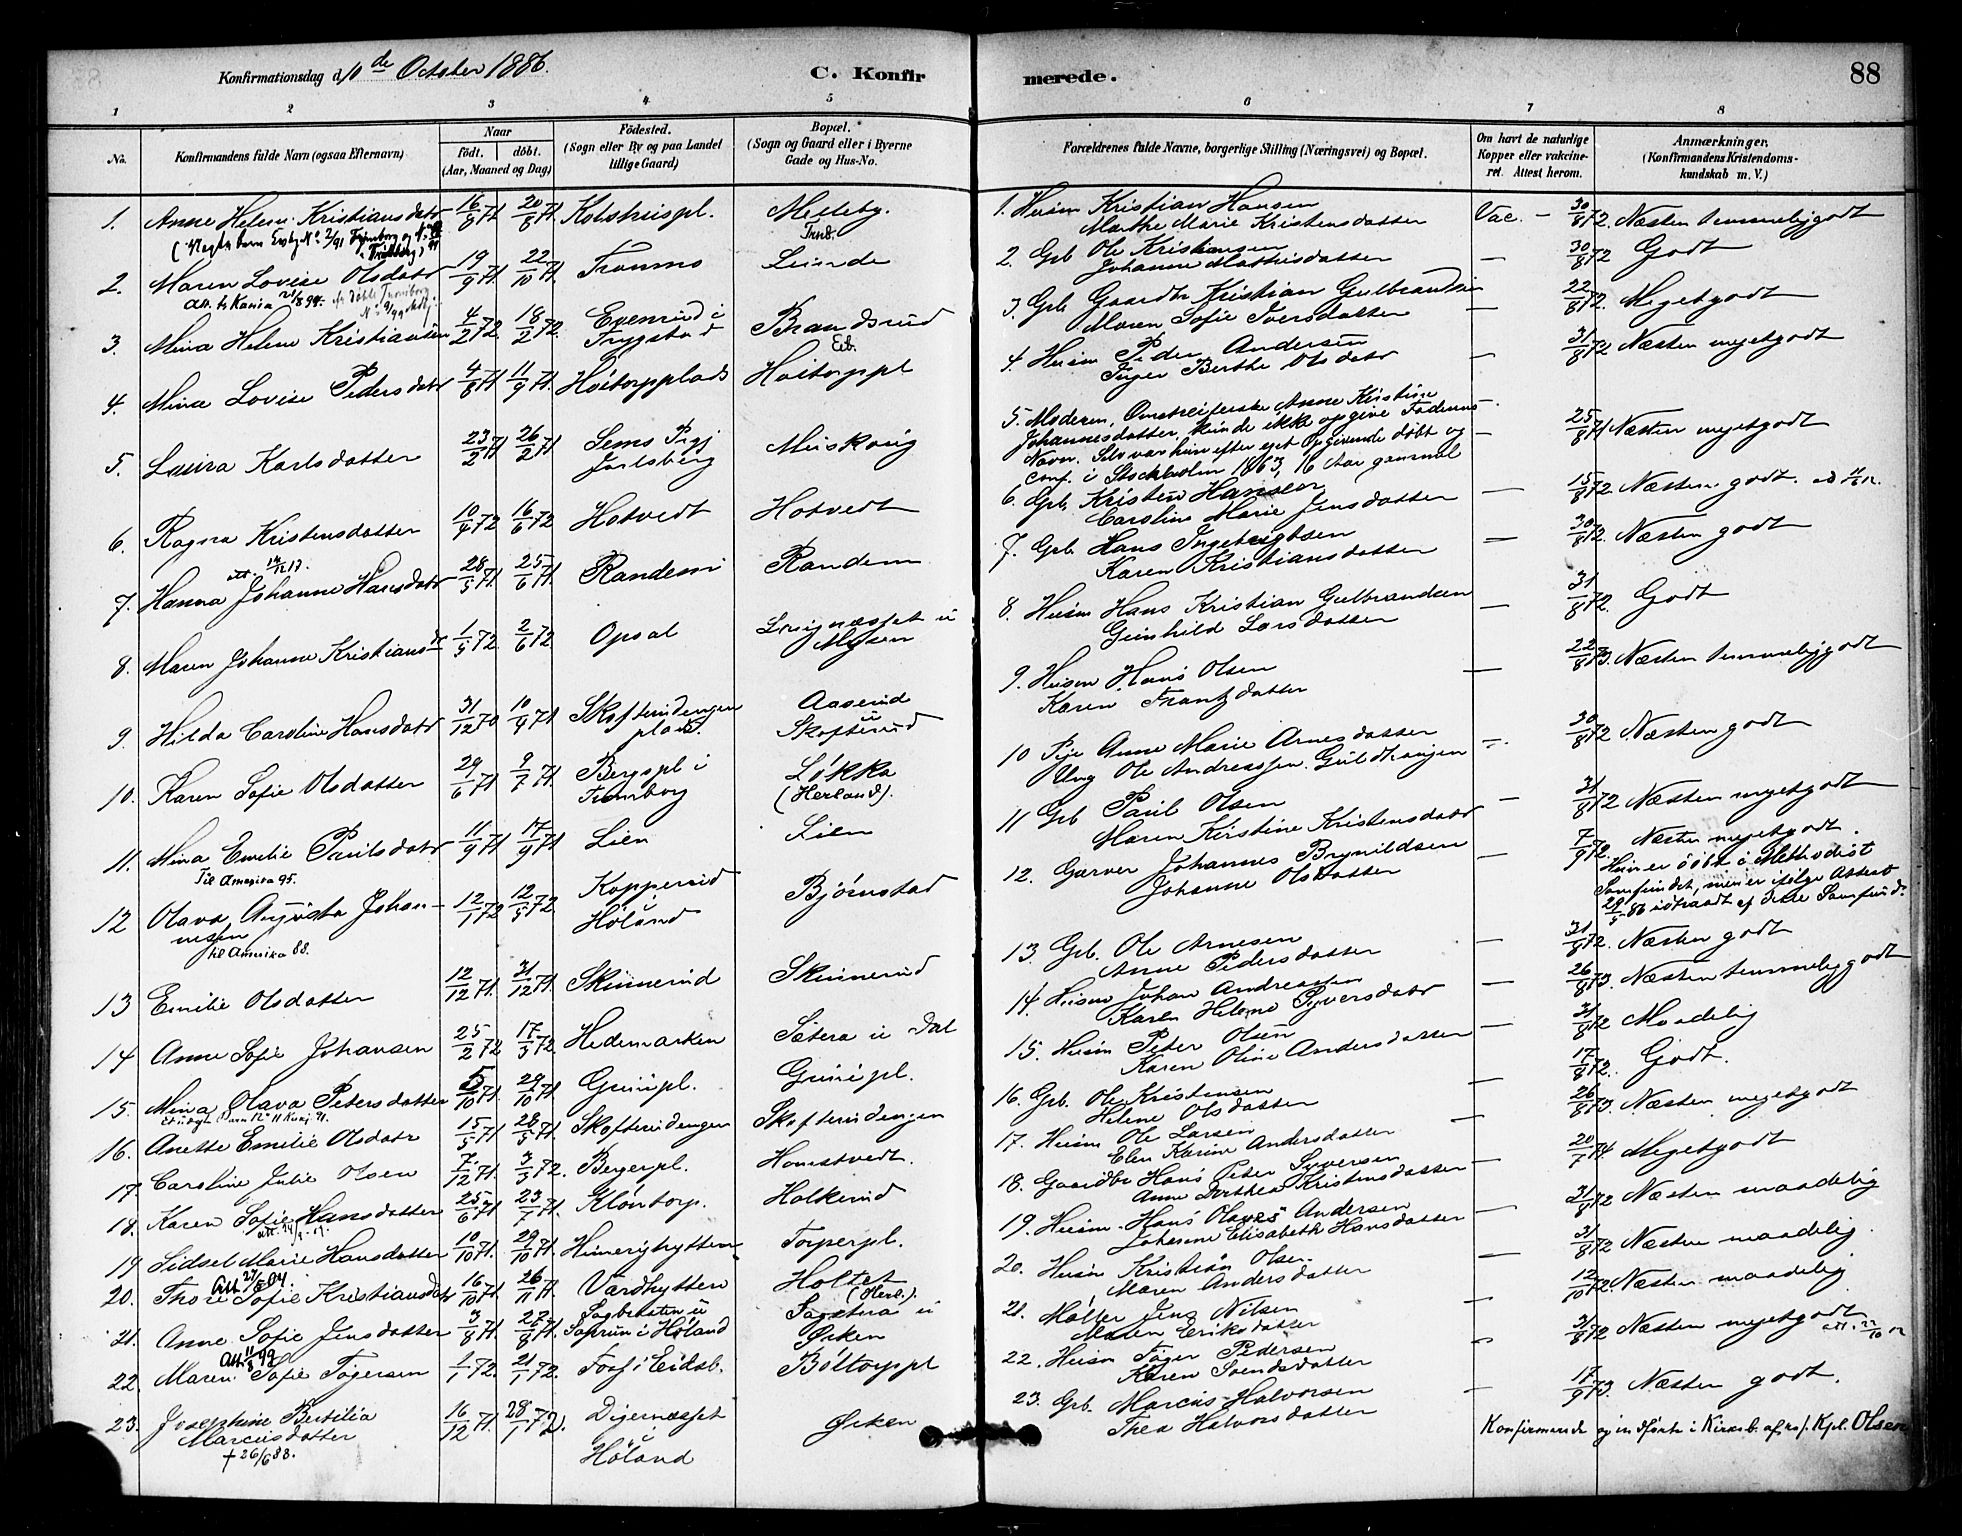 Konfirmationsdag d. 10de October 1886.
C. Konfirmerede.
88
1 2 3 4 5 6 7 8
No.
Konfirmandens fulde Navn (ogsaa Efternavn)
Naar
födt. döbt.
(Aar, Maaned og Dag)
Födested.
(Sogn eller By og paa Landet
tillige Gaard)
Bopæl.
(Sogn og Gaard eller i Byerne
Gade og Hus-No.
Forældrenes fulde Navne, borgerlige Stilling (Næringsvei) og Bopæl.
Om havt de naturlige
Kopper eller vakcine-
ret. Attest herom.
Anmærkninger.
(Konfirmandens Kristendoms-
kundskab m. V.)
1. Anne Helene Kristiansdatr 16/8 71 20/8 71 Kolshuspl. Melleby.
Trøb.
1. Husm Kristian Hansen
Marthe Marie Kristensdatter
Vac. - 30/8 72 Næsten temmeliggodt
2. Maren Lovise Olsdatr 19/9 71 22/10 71 Tronmo Lunde
Att. t. Krania 21/8 94.
2. Grb Ole Kristiansen
Johanne Mathisdatter
30/8 72 Godt
3. Mina Helene Kristiansen 4/2 72 18/2 72 Evenrud i
Trygstad
Brandsrud
Eib.
3. Grb. Gaardbr Kristian Gulbrandsen
Maren Sofie Iversdatter
22/8 72. Megetgodt
4. Mina Lovise Pedersdatr 4/8 71 11/9 71. Höitorpplads Höitorppl
4. Husm Peder Andersen
Inger Berthe Olsdatr
31/8 72 Næsten megetgodt
5. Laura Karlsdatter 23/2 71 26/2 71 Sems Prgj
Jarlsberg
Muskoug
5. Moderen, Omstreiferske Anne Kristine
Johannesdatter, kunde ikke opgive Faderens
Navn. Selv var hun efter eget Opgivende döbt og
conf. i Stockholm 1863, 16 Aar gammel
25/8 71 Næsten megetgodt
6. Ragna Kristensdatter 10/4 72 16/6 72 Hotvedt Hotvedt
att. 14/12 17.
6. Grb. Kristen Hansen
Caroline Marie Jensdatter
15/8 72. Næsten godt.
7. Hanna Johanne Hansdatr 28/5 71 25/6 71. Randem Randem
7. Grb Hans Ingebrigtsen
Karen Kristiansdatter
30/8 72. Næsten godt
8. Maren Johanne Kristiansdtr 1/5 72 2/6 72 Opsal Lvignæsset u
Mysen
8 Husm Hans Kristian Gulbrandsen
Gunhild Larsdatter
31/8 72. Godt
9. Hilda Caroline Hansdatr 31/12 70 10/4 71 Skofterudengen
plads.
Aaserud
u
Skofterud
9. Husm Hans Olsen
Karen Frantzdatter
22/8 73. Næsten temmeliggodt
10. Karen Sofie Olsdatter 29/6 71 9/7 71. Bergspl i
Trømborg
Løkka
(Herland).
10 Pige Anne Marie Arnesdatter
Ung. Ole Andreassen Guldhaugen
30/8 72 Næsten godt
11. Mina Emilie Paulsdatr 11/9 71 17/9 71. Lien Lien
Til Amerika 95.
11 Grb Paul Olsen
Maren Kristine Kristensdatr
31/8 72 Næsten megetgodt
12 Olava Augusta Johan-
nesen
til Amerika 88.
12/1 72 12/5 72 Kopperud
i
Höland
Bjørnstad
12. Garver Johannes Brynildsen
Johanne Olsdatter
7/9 72. Næsten megetgodt.
Hun er döbt i Methodist
Samfundet, men er ifölge Attest
29/5 86 udtraadt af dette Samfund.
13 Emilie Olsdatter 12/12 71. 31/12 71. Skinnerud Skinnerud
13. Grb. Ole Arnesen
Anne Pedersdatter
31/8 72. Næsten godt
14 Anne Sofie Johansen 25/2 72 17/3 72. Hedemarken Sætera u Dal
14. Husm Johan Andreassen
Karen Helene Syversdatr
26/8 73. Næsten temmeliggodt
15. Mina Olava Petersdatter 5/10 71 29/10 71. Grinipl. Grinipl.
15. Husm Peter Olsen
Karen Oline Andersdatter
31/8 72 Maadelig
16. Anette Emilie Olsdatr 15/5 71 28/5 71. Skofterudengen Skofterudengen
16. Grb. Ole Kristensen
Helene Olsdatter
17/8 72. Godt.
17. Caroline Julie Olsen 7/12 71. 3/3 72. Bergerpl. Homstvedt.
17. Husm Ole Larsen
Elen Karine Andersdatter
26/8 73. Næsten megetgodt
18. Karen Sofie Hansdatter 25/6 71 23/7 71. Klöntorp. Holkerud
18. Gaardbr Hans Peter Syversen
Anne Dorthea Kristensdatter
20/7 74 Megetgodt
19 Sidsel Marie Hansdatter 10/10 71. 29/10 71. Torperpl.
19. Husm Hans Olaves Andersen
Johanne Elisabeth Hansdatter
31/8 72 Næsten maadelig
20. Thore Sofie Kristiansdatr 16/10 71 26/11 71. Værdhytten Holtet
(Herl.).
Att 27/5 04.
20. Husm Kristian Olsen
Maren Andersdatter
31/8 72 Næsten maadelig.
21. Anne Sofie Jensdatter 3/8 71. 27/8 71. Sagbraaten u
Soprim i Höland
Sagstua u
Ørken
21. Møller Jens Nilsen
Maren Eriksdatter
12/10 72. Næsten maadelig
22. Maren Sofie Tögersen 1/1 72. 21/1 72. Foss i Eidsb. Böltorppl
Att. 11/3 92
22. Husm Töger Pedersen
Karen Svendsdatter
31/8 72 Næsten megetgodt
att. 22/10 12
23. Josephine Bertilia
Marcusdatter
† 26/6 88.
16/12 71. 28/1 72. Digernæsset
i
Höland
Ørken
23. Grb. Marcus Halvorsen
Thea Halvorsdatter
17/9 73. Næsten godt.
Konfirmerede og indförte i Kirkeb. af res. Kpl. Olsen